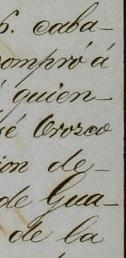 6. caba-
ompró á
quien
sé Orozco
ion de-
de Gua-
de la